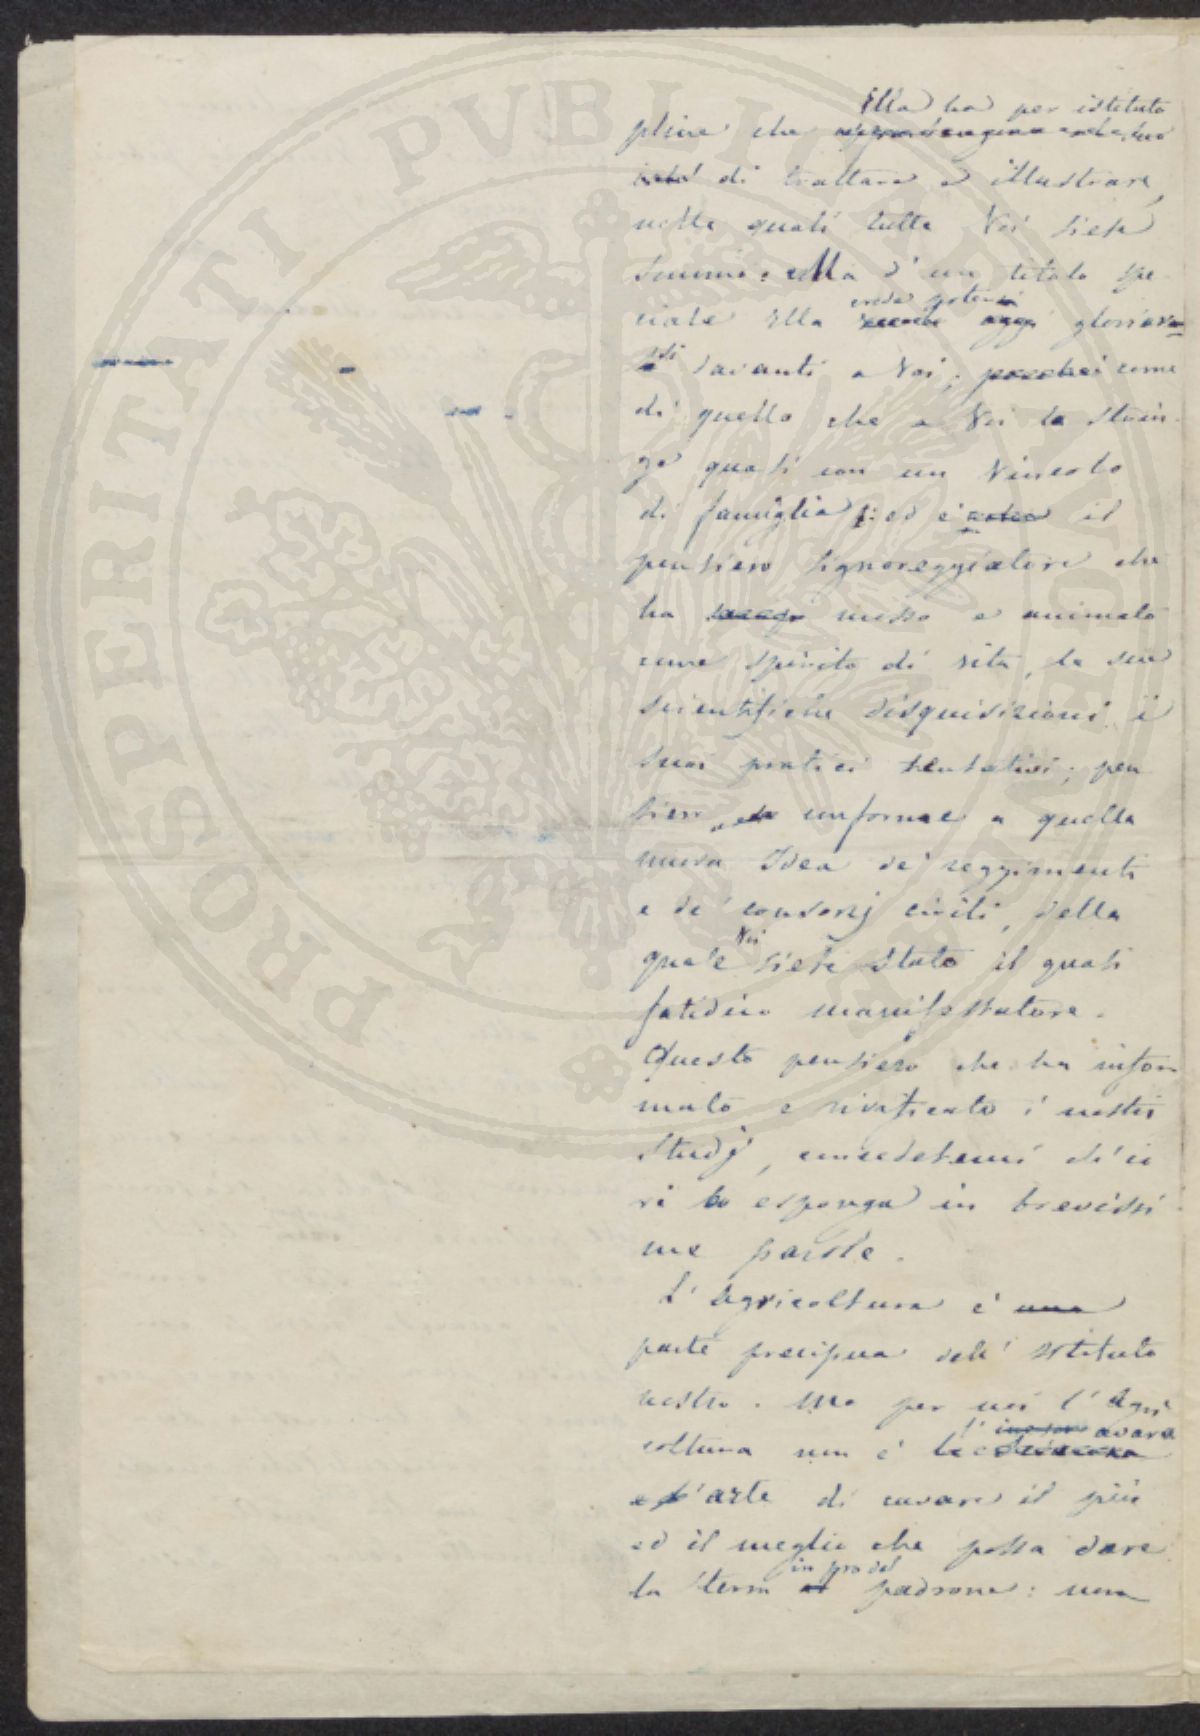 Ella ha per istituto
pline che
di trattare e illustrare,
nelle quali tutte Voi siete
sommo: ella d'un titolo spe
ciale Ella crede potersi gloriare
davanti a Voi; come
di quello che a Voi la strin-
ge quasi con un vincolo
di famiglia: ed è il
pensiero signoreggiatore che
ha mosso e animato
come spirito di vita, le sue
scientifiche disquisizioni, i
suoi pratici tentativi; pen
siero uniforme a quella
nuova Idea de' reggimenti
e de' consorzj civili, della
quale Voi siete stato il quasi
fatidico manifestatore.
Questo pensiero che ha infor
mato e vivificato i nostri
studj, concedetemi ch'io
vi lo esponga in brevissi
me parole.
L'Agricoltura è una
parte precipua dell'Istituto
nostro. Ma per noi l'Agri
coltura non è l' avara
arte di cavare il più
ed il meglio che possa dare
la terra in pro del padrone: non
PROSPERITATI PVBLICAE